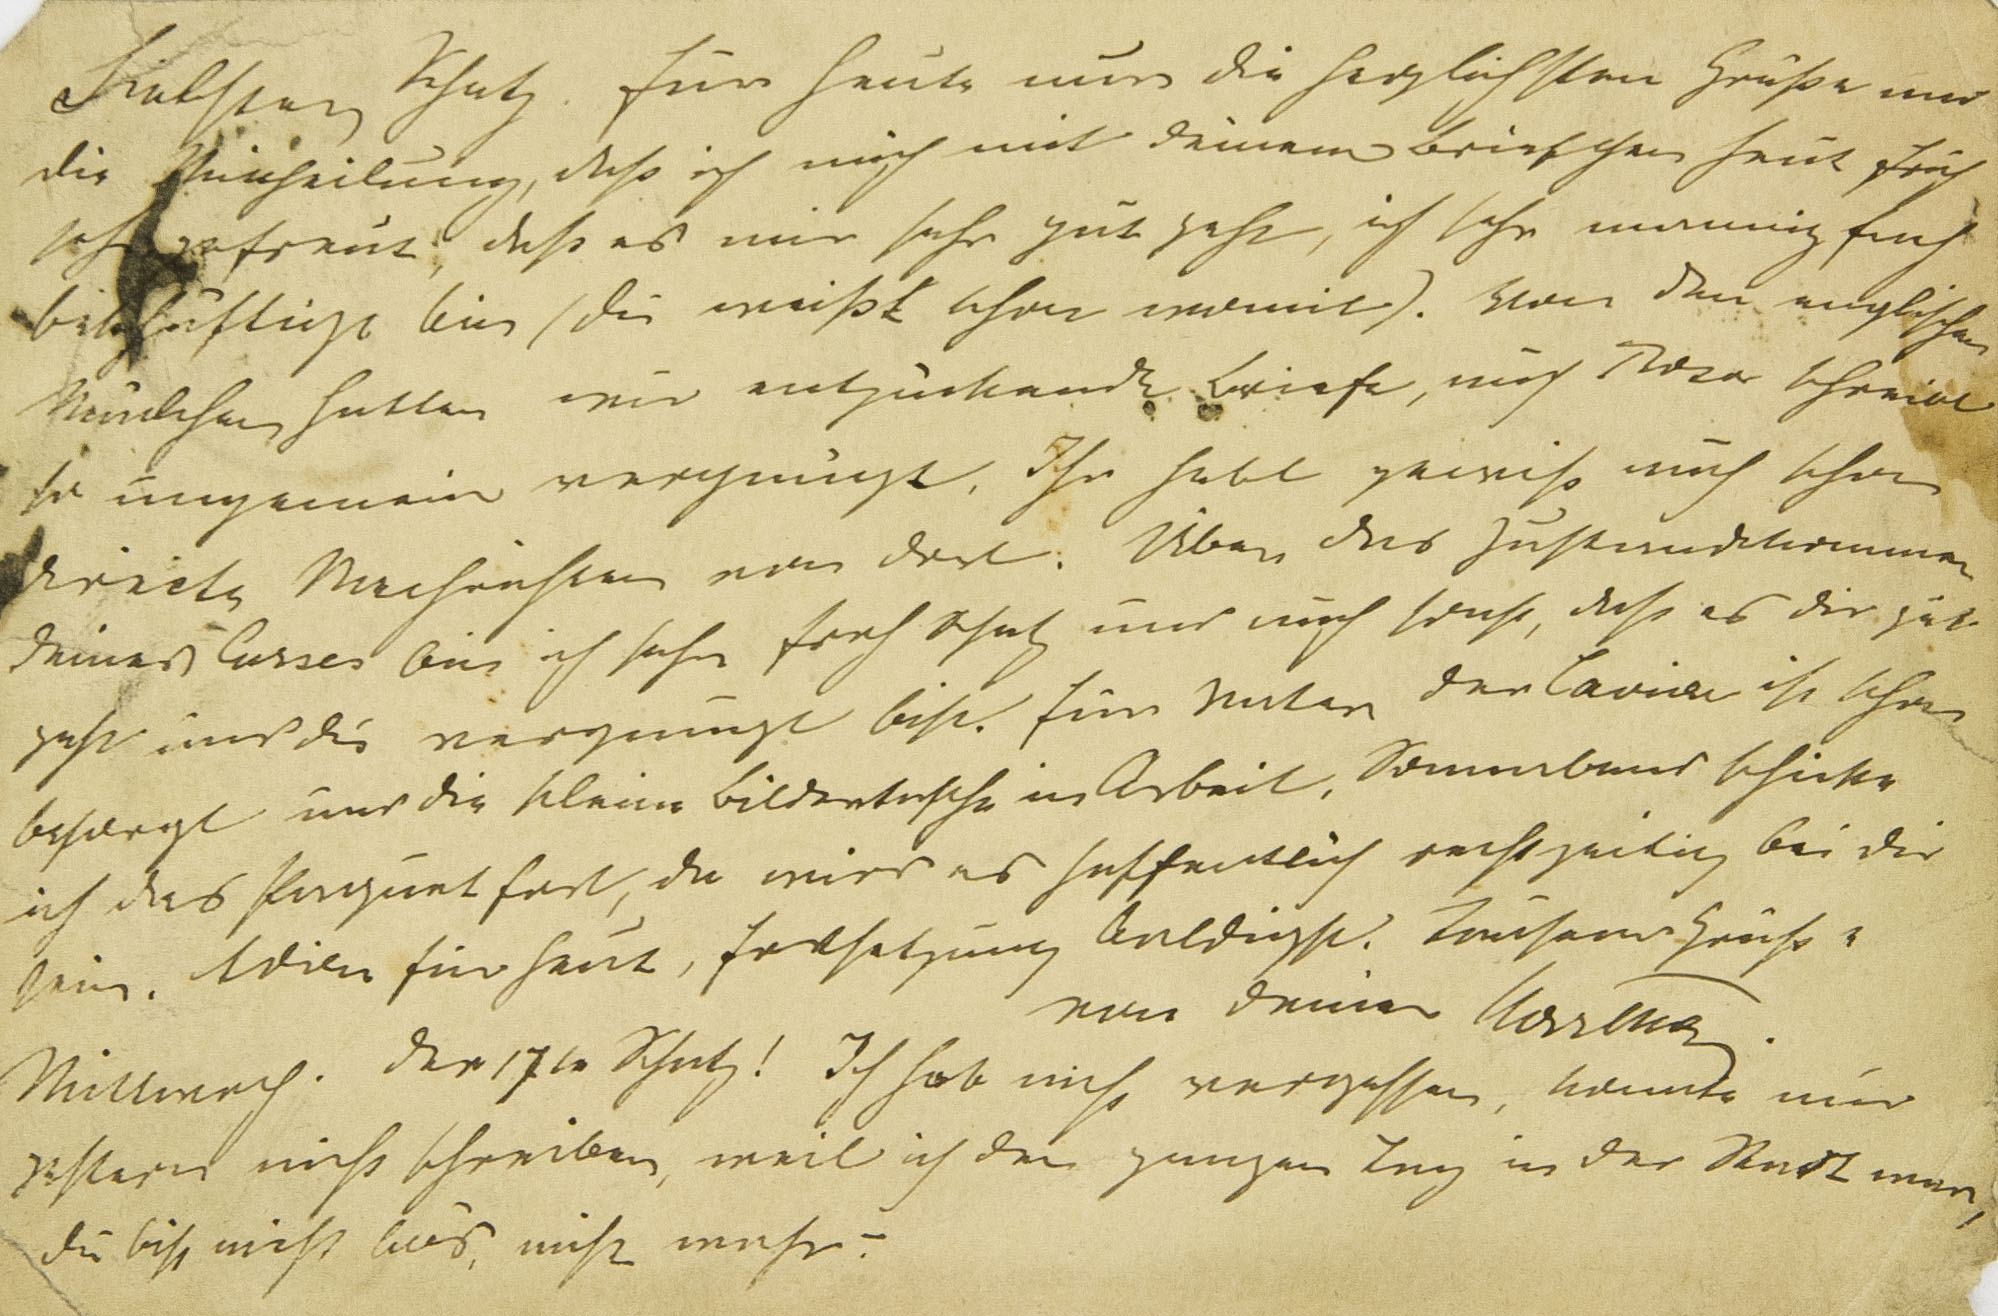 Liebster Schatz. Für heute nur die herzlichsten Grüße und
die Mittheilung, daß ich mich mit deinem Briefchen heut früh
sehr gefreut, daß es mir sehr gut geht, ich sehr mannigfach
beschäftigt bin (du weißt schon womit). Von den englischen
Mädchen hatten wir entzückende Briefe, auch Rosa schreibt
so ungemein vergnügt. Ihr habt gewiß auch schon
directe Nachrichten von dort. Über das Zustandekommen
deines Curses bin ich sehr froh Schatz und auch sonst, daß es dir gut
geht und du vergnügt bist. Für Vater der Caviar ist schon
besorgt und die kleine Bildertasche in Arbeit, Sonnabend schicke
ich das Paquet fort, da wird es hoffentlich rechtzeitig bei dir
sein. Adieu für heut, Fortsetzung baldigst. Tausend Grüße
von deiner
Mittwoch. Der 17te Schatz! Ich hab nicht vergessen, konnte nur
gestern nicht schreiben, weil ich den ganzen Tag in der Stadt war,
du bist nicht bös, nicht wahr?